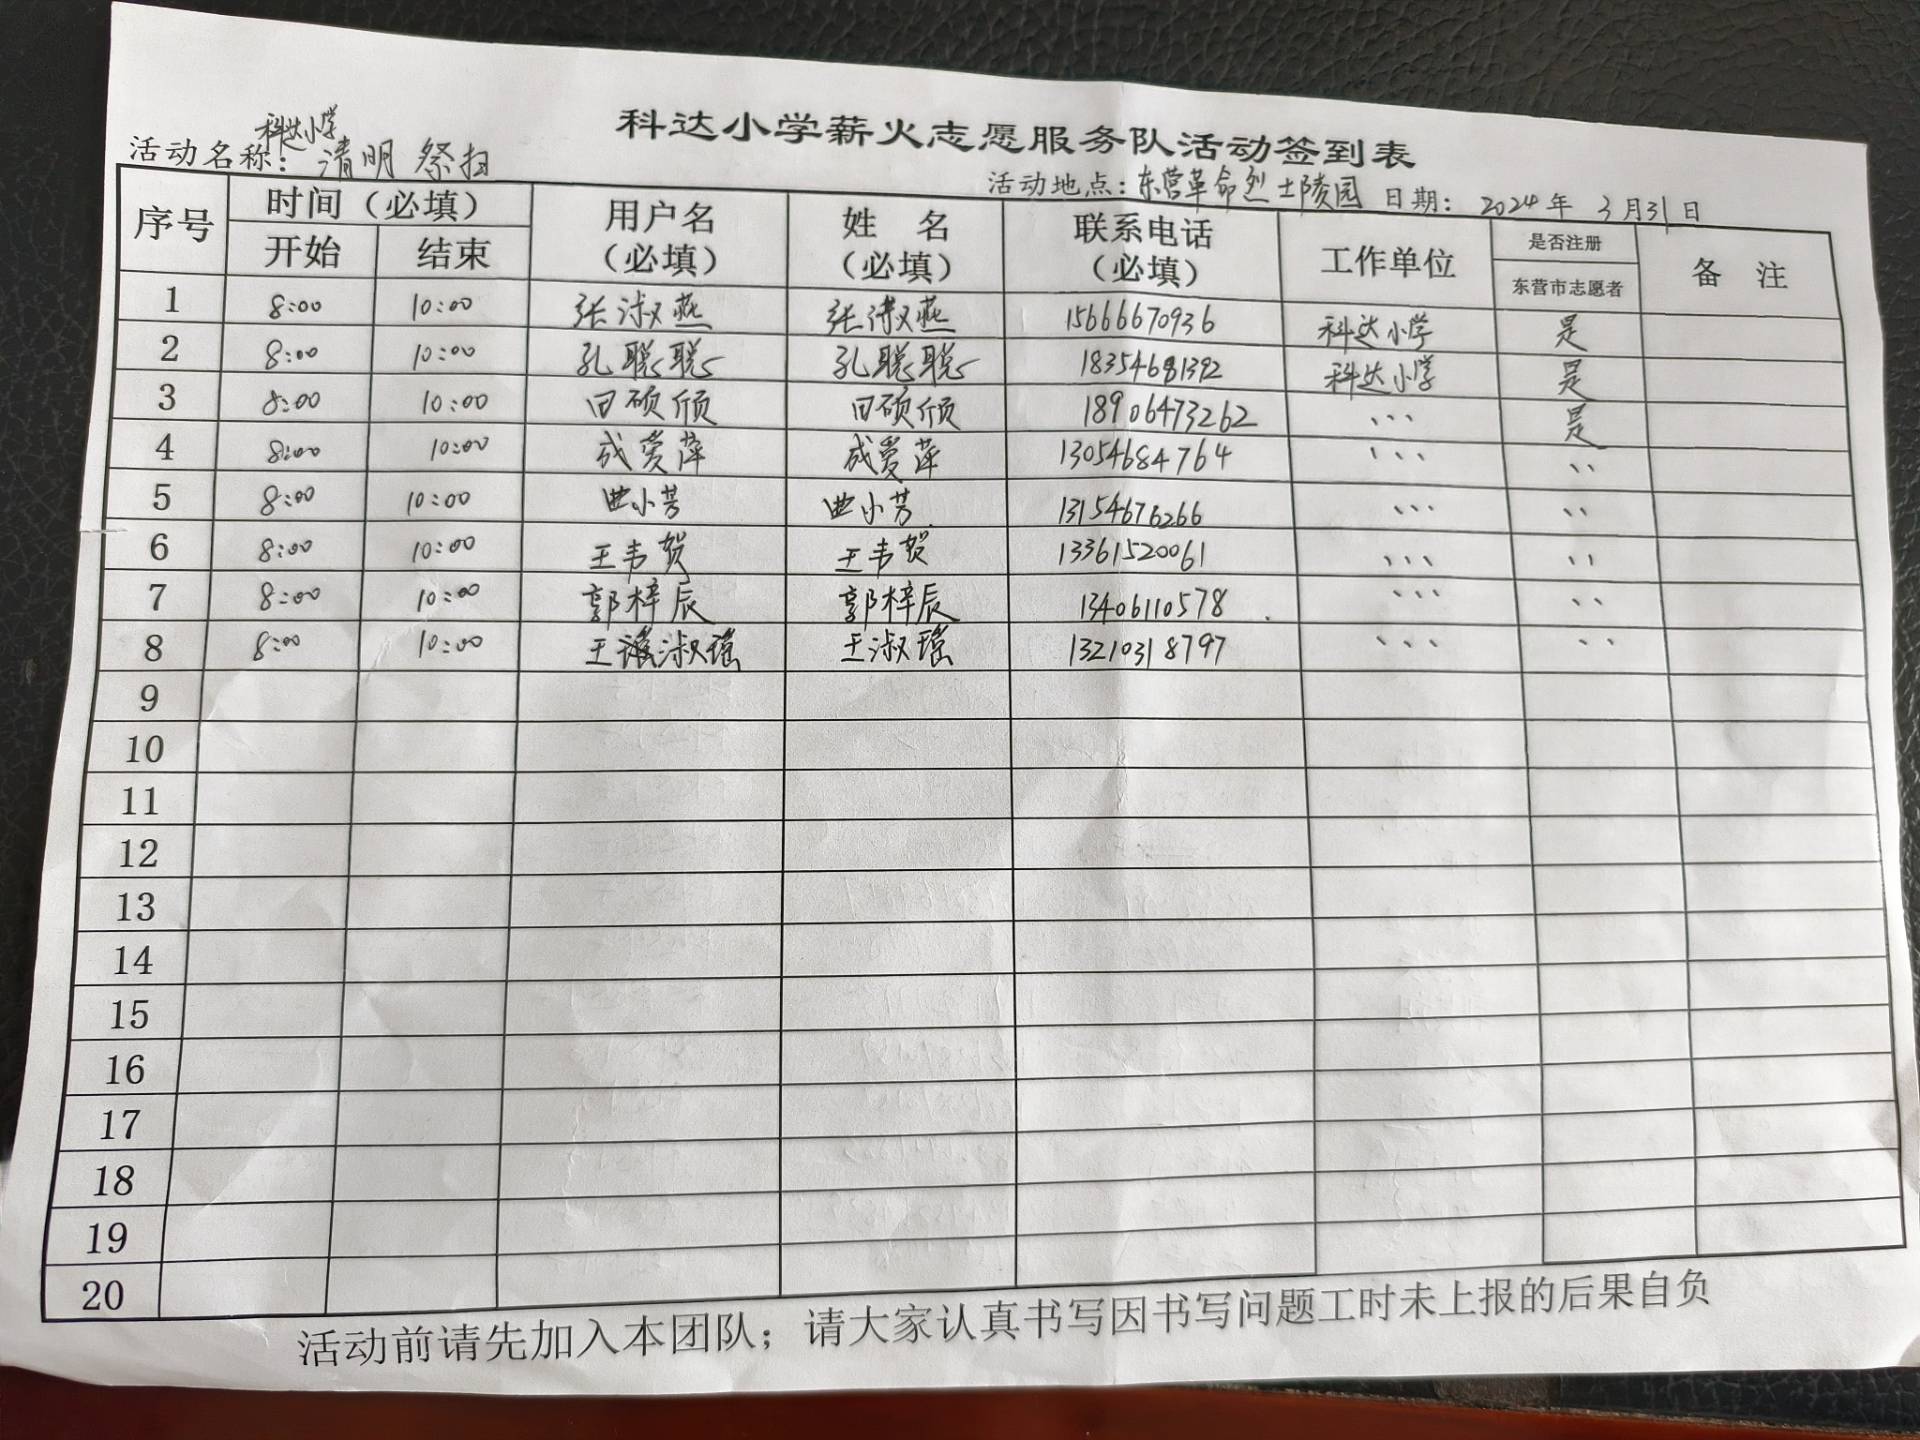 科达小学薪火志愿服务队活动签到表
科达小学
活动名称：清明祭扫 活动地点：东营革命烈士陵园 日期：2024年 3月31日
序号 时间（必填） 用户名（必填） 姓 名（必填） 联系电话（必填） 工作单位 是否注册 备 注
开始 结束 东营市志愿者
1 8:00 10:00 张淑燕 张淑燕 15666670936 科达小学 是
2 8:00 10:00 孔聪聪 孔聪聪 18354681392 科达小学 是
3 8:00 10:00 田硕颀 田硕颀 18906473262 、、、 是
4 8:00 10:00 成爱萍 成爱萍 13054684764 、、、 、、
5 8:00 10:00 曲小芳 曲小芳 13154676266 、、、 、、
6 8:00 10:00 王韦贺 王韦贺 13361520061 、、、 、、
7 8:00 10:00 郭梓辰 郭梓辰 13406110578 、、、 、、
8 8:00 10:00 王淑瑶 王淑瑶 13210318797 、、、 、、
9
10
11
12
13
14
15
16
17
18
19
20
活动前请先加入本团队；请大家认真书写因书写问题工时未上报的后果自负